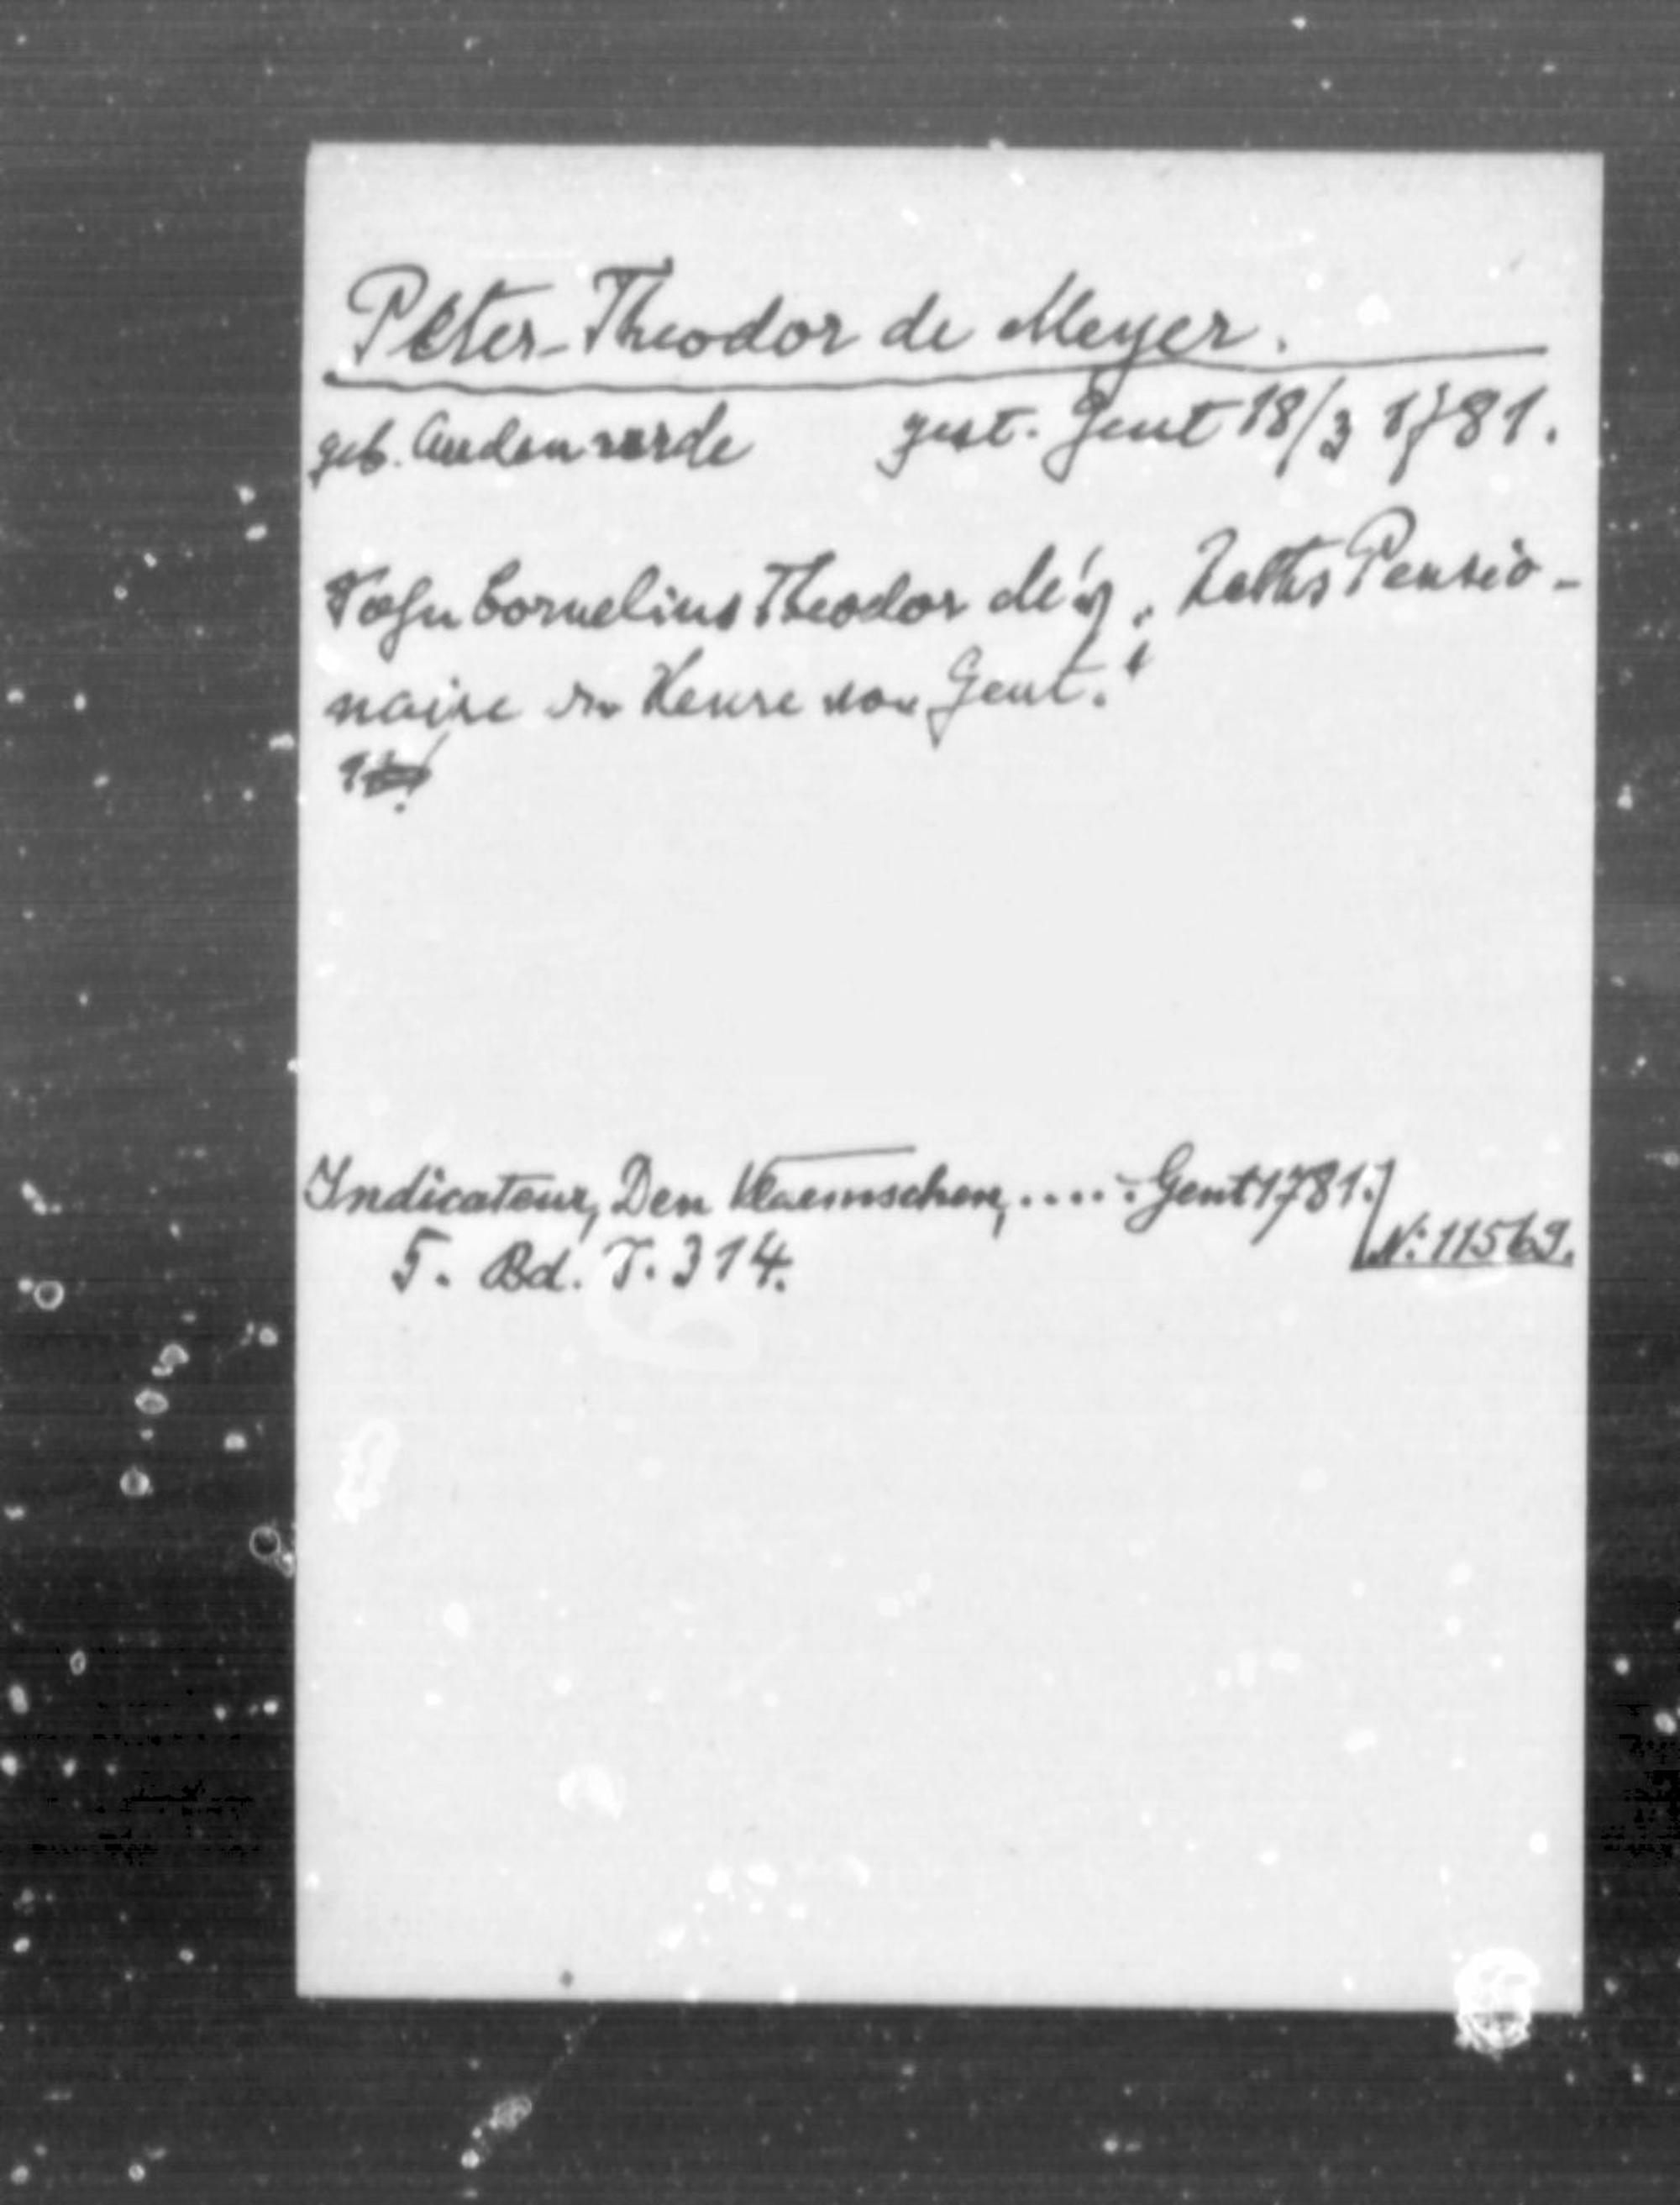 Peter-Theodor de Meyer.
geb. Audenarde gest. Gent 18/3 1781.
Sohn Cornelius Theodor de's, Raths Pensio-
naire der Keure von Gent."
Indicateur, Den Vlaemschen, ..... Gent 1781.
N: 11569.
5. Bd. S. 314.